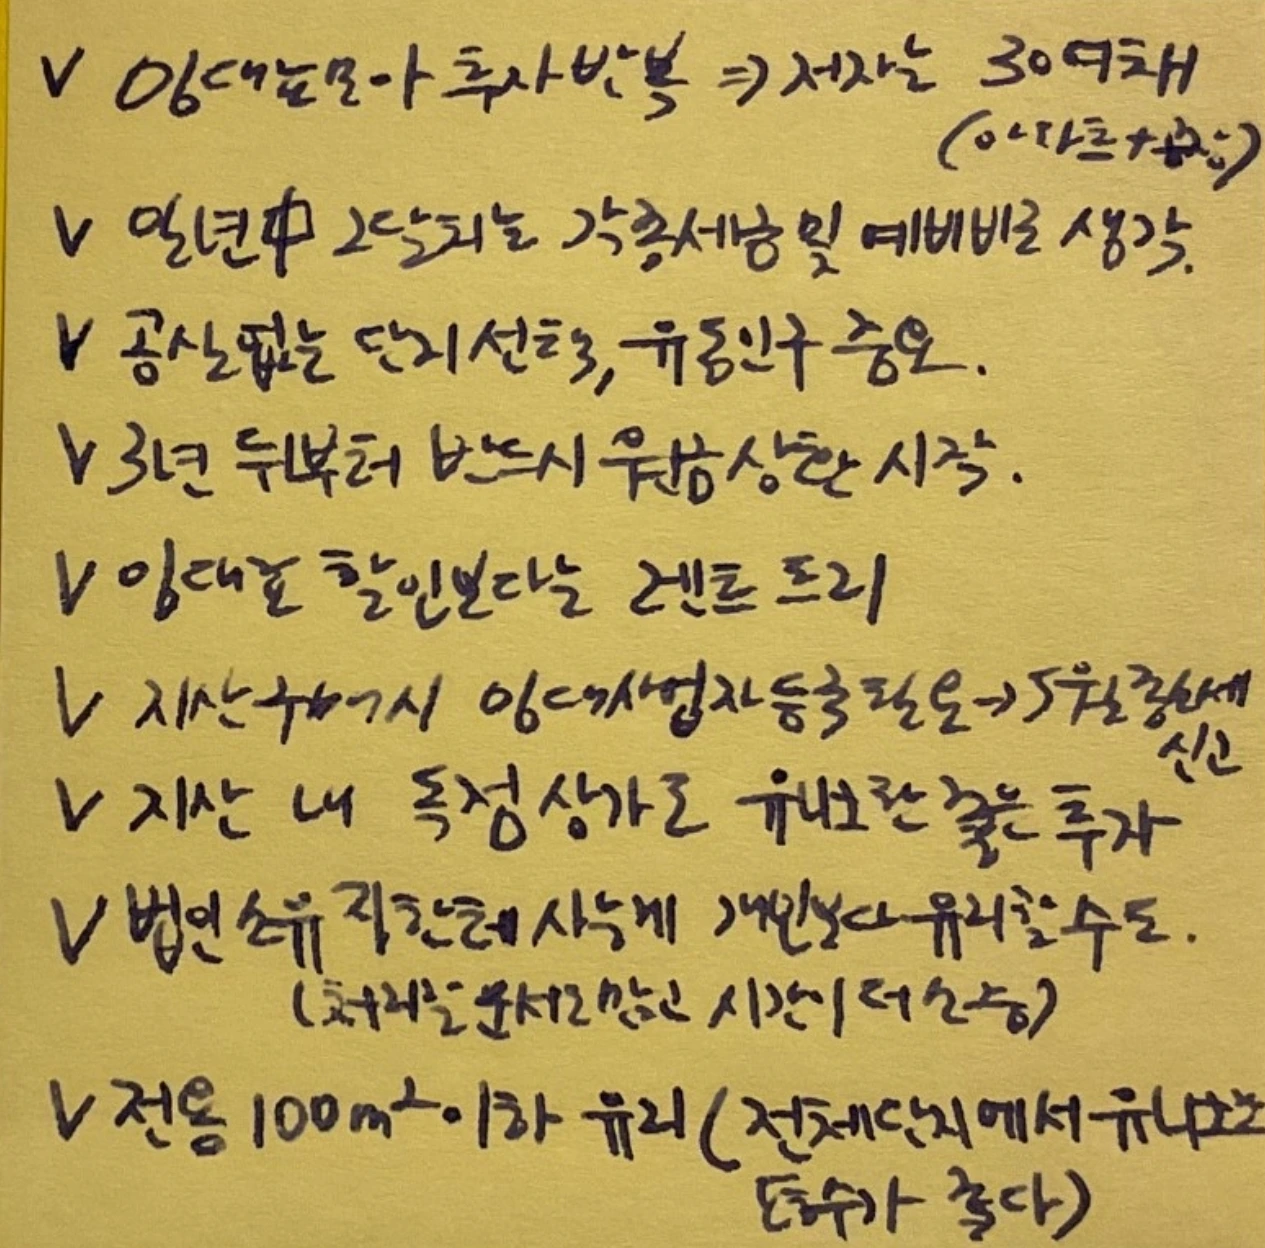 V 임대료 모아 투자 반복 => 저자는 30여채
(아파트 +
V 일년中 2달치는 각종세금 및 예비비로 생각.
V 공실없는 단지 선택, 유동인구 중요.
V 3년 뒤부터 반드시 원금상환 시작.
V 임대료 할인보다는 렌트프리
V 지산 구매시 임대사업자등록 필요 → 5월 종소세
신고
V 지산 내 독점상가로 유니크한 좋은 투자
V 법인소유 직한테 사는게 개인보다 유리할수도.
(처리할 문서도 많고 시간이 더 소중)
V 전용 100m² 이하 유리 (전체단지에서
좋다)